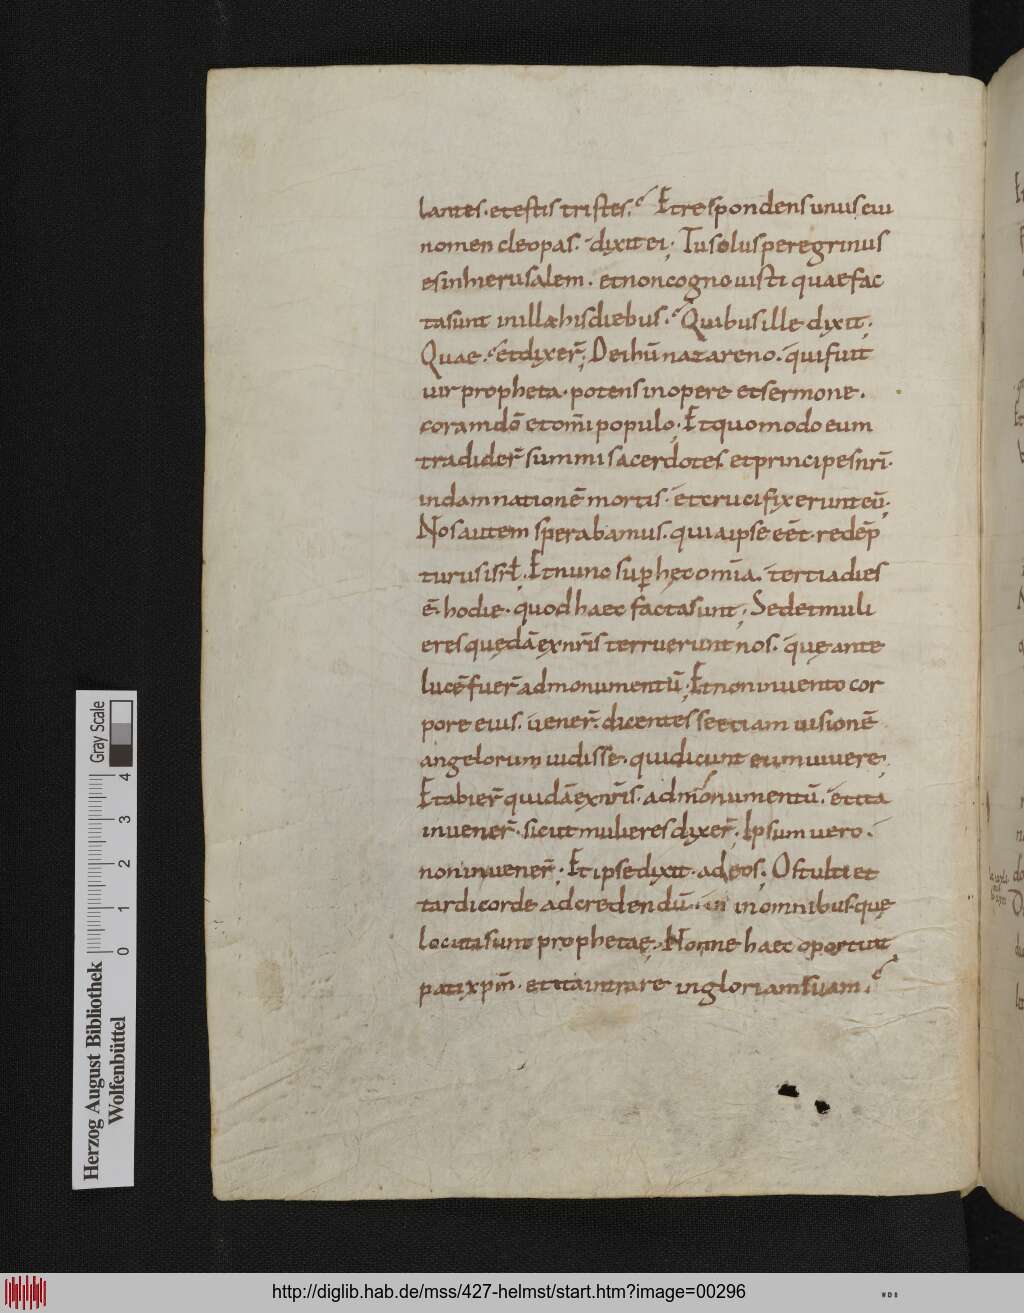 lantes· et estis tristes· Et respondens unus cui
nomen cleopas· dixit ei; Tu solus peregrinus
es in hierusalem· et non cognouisti quae fac
ta sunt in illa his diebus· Quibus ille dixit;
Quae· et dixer̄; De ihū nazareno· qui fuit
uir propheta· potens in opere et sermone·
coram dō et om̄i populo; Et quomodo eum
tradider̄ summi sacerdotes et principes nr̄i·
in damnationē mortis· et crucifixerunt eū;
Nos autem sperabamus· quia ipse eēt redēp
turus isrł; Et nunc sup̄ hęc om̄ia· tertia dies
ē hodie· quod haec facta sunt; Sed et muli
eres quędā ex nr̄is terruerunt nos· quę ante
lucē fuer̄ ad monumentū; Et non inuento cor
pore eius· uener̄ dicentes se etiam uisionē
angelorum uidisse· qui dicunt eum uiuere;
Et abier̄ quidā ex nr̄is· ad monumentū· et ita
inuener̄· sicut mulieres dixer̄· Ipsum uero·
non inuener̄; Et ipse dixit· ad eos; O stulti et
tardi corde ad credendū· in in omnibus quę
locuta sunt prophetae; Nonne haec oportuit
pati xpm̄· et ita intrare in gloriam suam·
Gray Scale
0 1 2 3 4
Herzog August Bibliothek
Wolfenbüttel
http://diglib.hab.de/mss/427-helmst/start.htm?image=00296